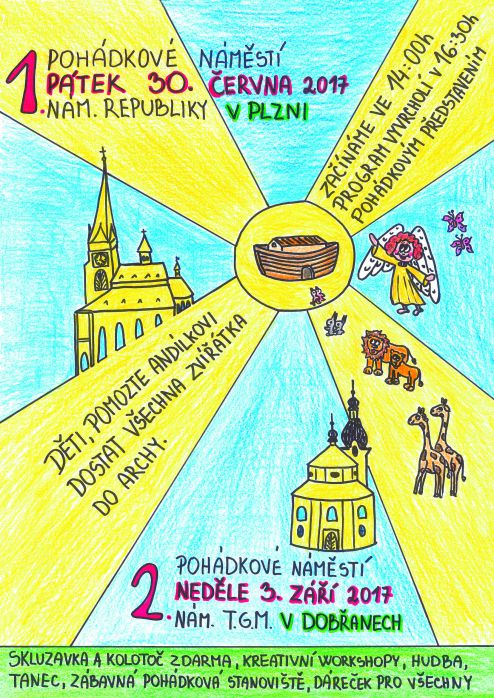 1. POHÁDKOVÉ NÁMĚSTÍ
PÁTEK 30. ČERVNA 2017
NÁM. REPUBLIKY V PLZNI
ZAČÍNÁME VE 14:00h
PROGRAM VYVRCHOLÍ V 16:30h
POHÁDKOVÝM PŘEDSTAVENÍM
DĚTI, POMOZTE ANDÍLKOVI
DOSTAT VŠECHNA ZVÍŘÁTKA
DO ARCHY.
2. POHÁDKOVÉ NÁMĚSTÍ
NEDĚLE 3. ZÁŘÍ 2017
NÁM. T.G.M. V DOBŘANECH
SKLUZAVKA A KOLOTOČ ZDARMA, KREATIVNÍ WORKSHOPY, HUDBA,
TANEC, ZÁBAVNÁ POHÁDKOVÁ STANOVIŠTĚ, DÁREČEK PRO VŠECHNY